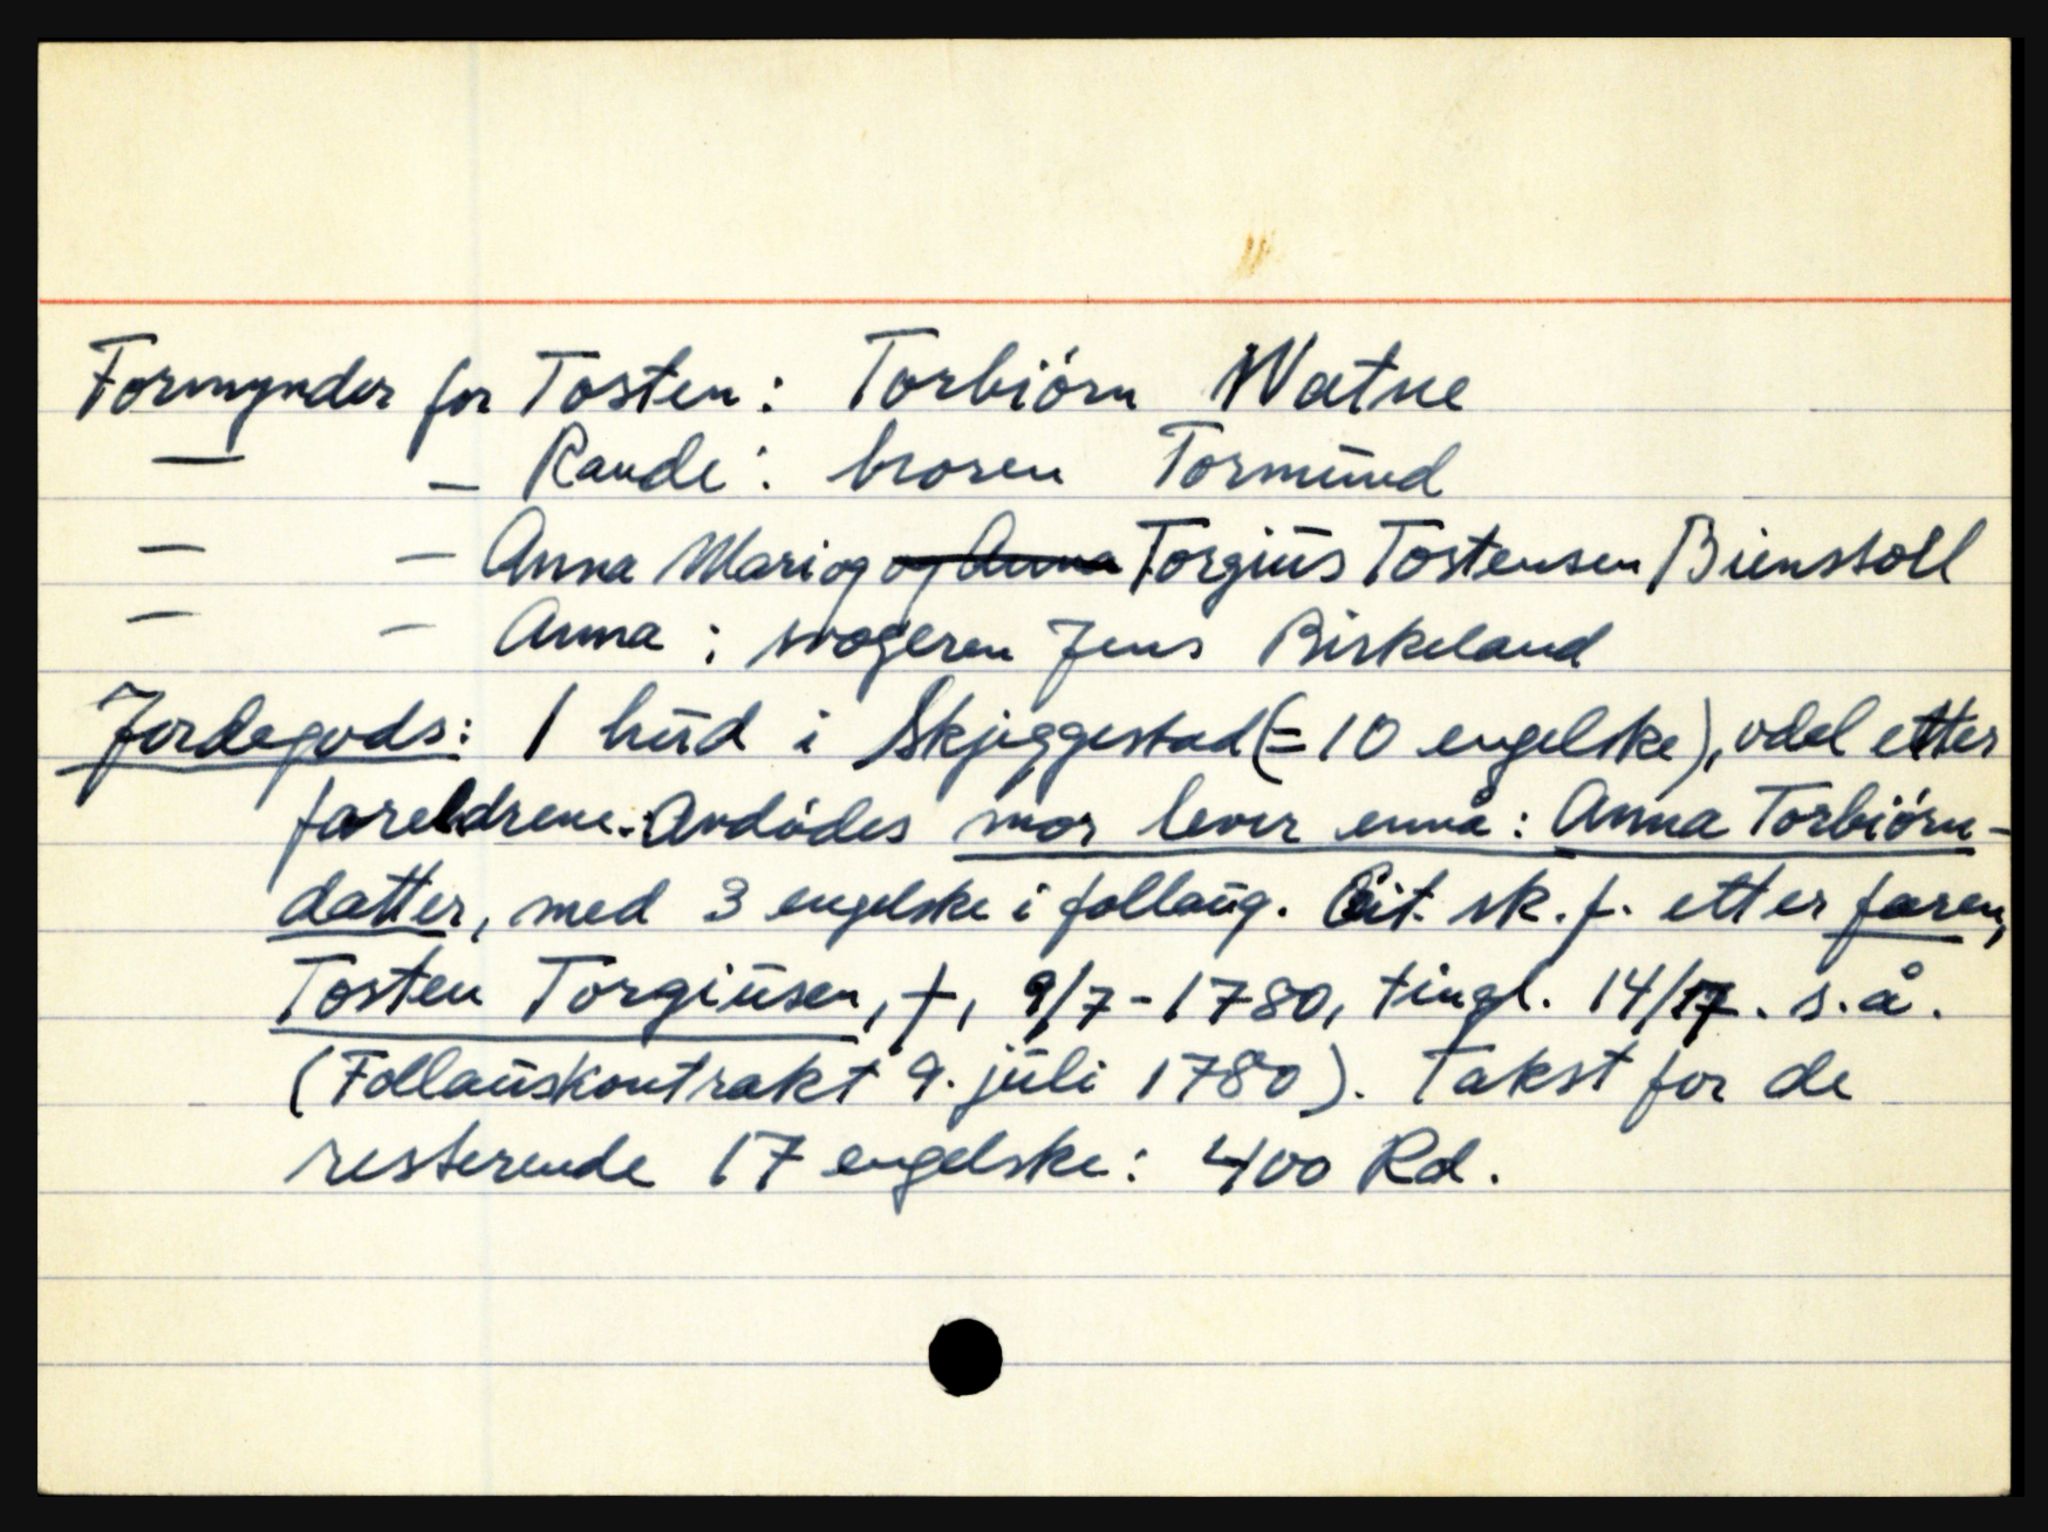 Formynder for Tosten: Torbiörn Watne
— — Rande: broren Tormund
— — Anna Mari og og Anna Torgius Tostensen Bienstoll
— — Anna: svogeren Jens Birkeland
Jordegods: 1 hud i Skjeggestad (= 10 engelske), odel etter
foreldrene. Avdödes mor lever ennå: Anna Torbiörn-
datter, med 3 engelske i follaug. Cit. sk.f. etter faren,
Tosten Torgiusen, †, 9/7-1780, tingl. 14/7. s.å.
(Follauskontrakt 9. juli 1780). Takst for de
resterende 17 engelske: 400 Rd.